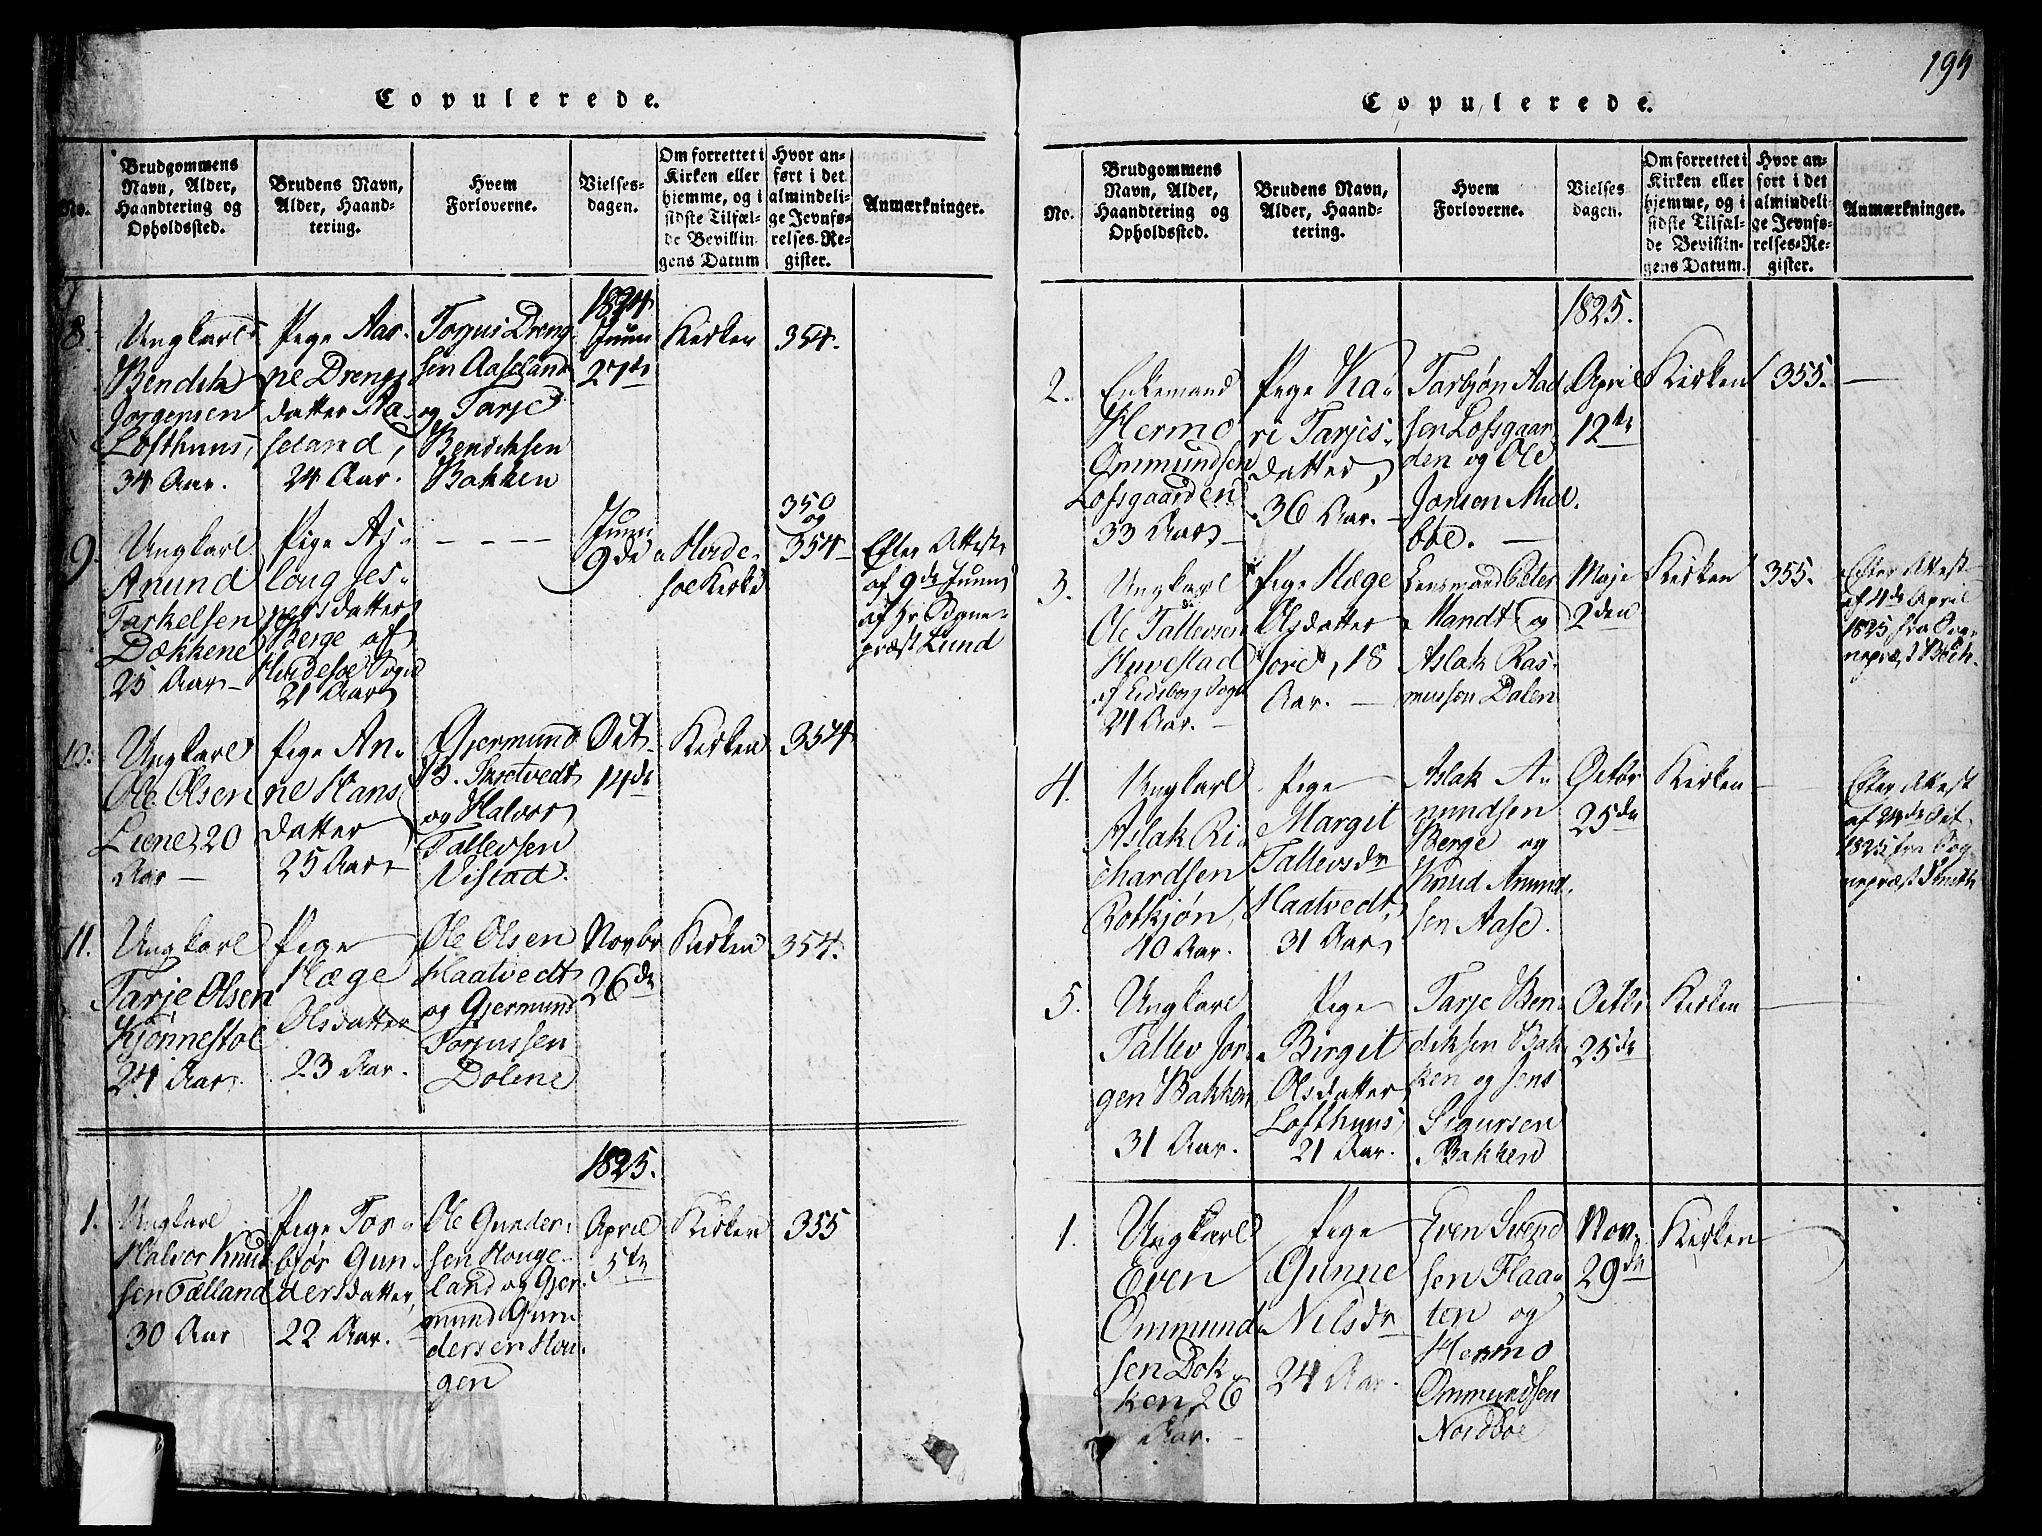 Copulerede.
No.
Brudgommens
Navn, Alder,
Haandtering og
Opholdssted.
Brudens Navn,
Alder, Haand-
tering.
Hvem
Forloverne.
Vielses-
dagen.
Om forrettet i
Kirken eller
hjemme, og i
sidste Tilfæl-
de Bevillin-
gens Datum
Hvor an-
ført i det
almindeli-
ge Jevnfø-
relses-Re-
gister.
Anmærkninger.
8.
Ungkarl
Bendik
Jorgensen
Lofthuus,
34 Aar.
Pige Aas-
ne Drengs
datter Aa-
seland,
24 Aar.
Torjus Dreng
sen Aaseland
og Tarje
Bendiksen
Bakken
1824.
Juni
27de
Kirken
354.
9.
Ungkarl
Anund
Tarkelsen
Dækkene
25 Aar
Pige As-
loug Jes-
persdatter
Berge af
Hvidesøe Sogn
21 Aar
- - - -
Juni
9de
Hvide-
søe Kirke
350
og
354
Efter Attest
af 9de Juni
af Hr Sogne-
præst Lund
10.
Ungkarl
Ole Olsen
Liene, 20
Aar
Pige An-
ne Hans
datter
25 Aar
Gjermund
B. Tvedt
og Halvor
Tallevsen
Vistad.
Oct.
14de
Kirken
354
11.
Ungkarl
Tarje Olsen
Kjønnestøl
24 Aar.
Pige
Hæge
Olsdatter
23 Aar.
Ole Olsen
Haatvedt
og Gjermund
Torjussen
Dolene
Novbr
26de
Kirken
354.
1825.
1.
Ungkarl
Halvor Knut
sen Tælland
30 Aar
Pige Tor-
bjør Gun-
dersdatter,
22 Aar.
Ole Gunder-
sen Houge-
land og Gjer-
mund Gun
dersen Hou-
gen
April
5te
Kirken
355
194
Copulerede.
No.
Brudgommens
Navn, Alder,
Haandtering og
Opholdssted.
Brudens Navn,
Alder, Haand-
tering.
Hvem
Forloverne.
Vielses
dagen.
Om forrettet i
Kirken eller
hjemme, og i
sidste Tilfæl-
de Bevillin-
gens Datum.
Hvor an-
ført i det
almindeli-
ge Jevnfø-
relses-Re-
gister.
Anmærkninger.
1825.
2.
Enkemand
Hermo
Ommundsen
Lofsgaarden
33 Aar
Pige Ka-
ri Tarjes-
datter,
36 Aar.
Tarbjøn Aad
sen Lofsgaar
den og Ole
Jonsen Mid
bøe.
April
12te
Kirken
355.
3.
Ungkarl
Ole Tallevsen
Huvestad
af Eidsborg Sogn
21 Aar.
Pige Hæge
Olsdatter
Jore, 18
Aar.
Lensmand Peter
Mandt og
Aslak Ras-
mussen Dalen
Maje
2den
Kirken
355.
Efter Attest
af 4de April
1825 fra Sog-
nepræst Bech.
4.
Ungkarl
Aslak Ri-
chardsen
Rotkjøn,
40 Aar.
Pige
Margit
Tallevsdr
Haatvedt,
31 Aar
Aslak A-
nundsen
Berge og
Knud Anund-
sen Aase.
Octbr
25de
Kirken
Efter Attest
af 24de Oct.
1825 fra Sog-
nepræst Smith
5.
Ungkarl
Tallev Jør-
gen Bakken
31 Aar.
Pige
Birgit
Olsdatter
Lofthuus
21 Aar.
Tarje Ben-
diksen Bak-
ken og Jens
Sigursen
Bakken
Octbr
25de
Kirken
1.
Ungkarl
Even
Ommund-
sen Dok-
ken, 26
Aar.
Pige
Gunne
Nilsdr
24 Aar.
Even Svend
sen Flaa-
ten og
Hermo
Ommundsen
Nordbøe
Nov.
29de
Kirken